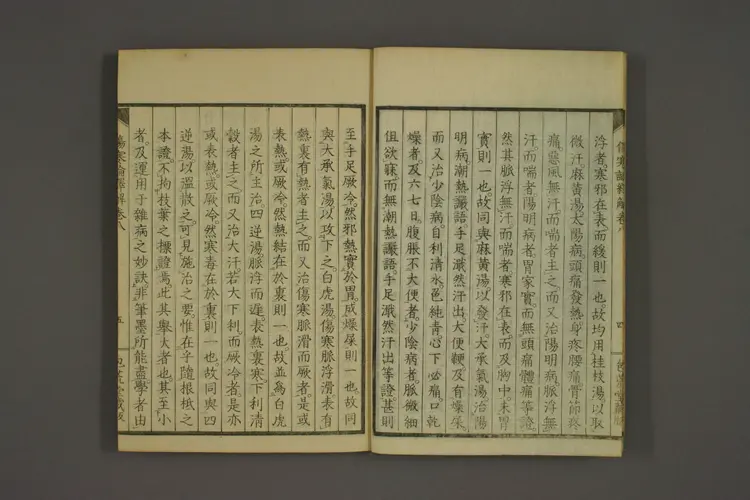 浮者。寒邪在表。而緩則一也。故均用桂枝湯。以取
微汗。麻黃湯。太陽病。頭痛發熱。身疼腰痛。骨節疼
痛。惡風無汗而喘者。主之。而又治陽明病。脈浮無
汗。而喘者。陽明病者。胃家實。而無頭痛體痛等證。
然其脈浮。無汗而喘者。寒邪在表。而及胸中。未胃
實則一也。故同與麻黃湯以發汗。大承氣湯。治陽
明病。潮熱讝語。手足濈然汗出。大便鞕。及有燥屎。
而又治少陰病。自利清水。色純青。心下必痛。口乾
燥者。及六七日。腹脹不大便者。少陰病者。脈微細。
但欲寐。而無潮熱讝語。手足濈然汗出等證。甚則
傷寒論繹解卷八
四
至手足厥冷。然邪熱實於胃。成燥屎則一也。故同
與大承氣湯。以攻下之。白虎湯。傷寒脈浮滑。表有
熱。裏有熱者。主之。而又治傷寒脈滑而厥者。是或
表熱。或厥冷。然熱結在於裏則一也。故並為白虎
湯之所主治。四逆湯。脈浮而遲。表熱裏寒。下利清
穀者。主之。而又治大汗。若大下利。而厥冷者。是亦
或表熱。或厥冷。然寒毒在於裏則一也。故同與四
逆湯。以溫散之。可見施治之要。惟在乎隨根柢之
本證。不拘枝葉之標證焉。此其舉大者也。其至小
者。及運用于雜病之妙訣。非筆墨所能盡。學者由
傷寒論繹解卷八
五